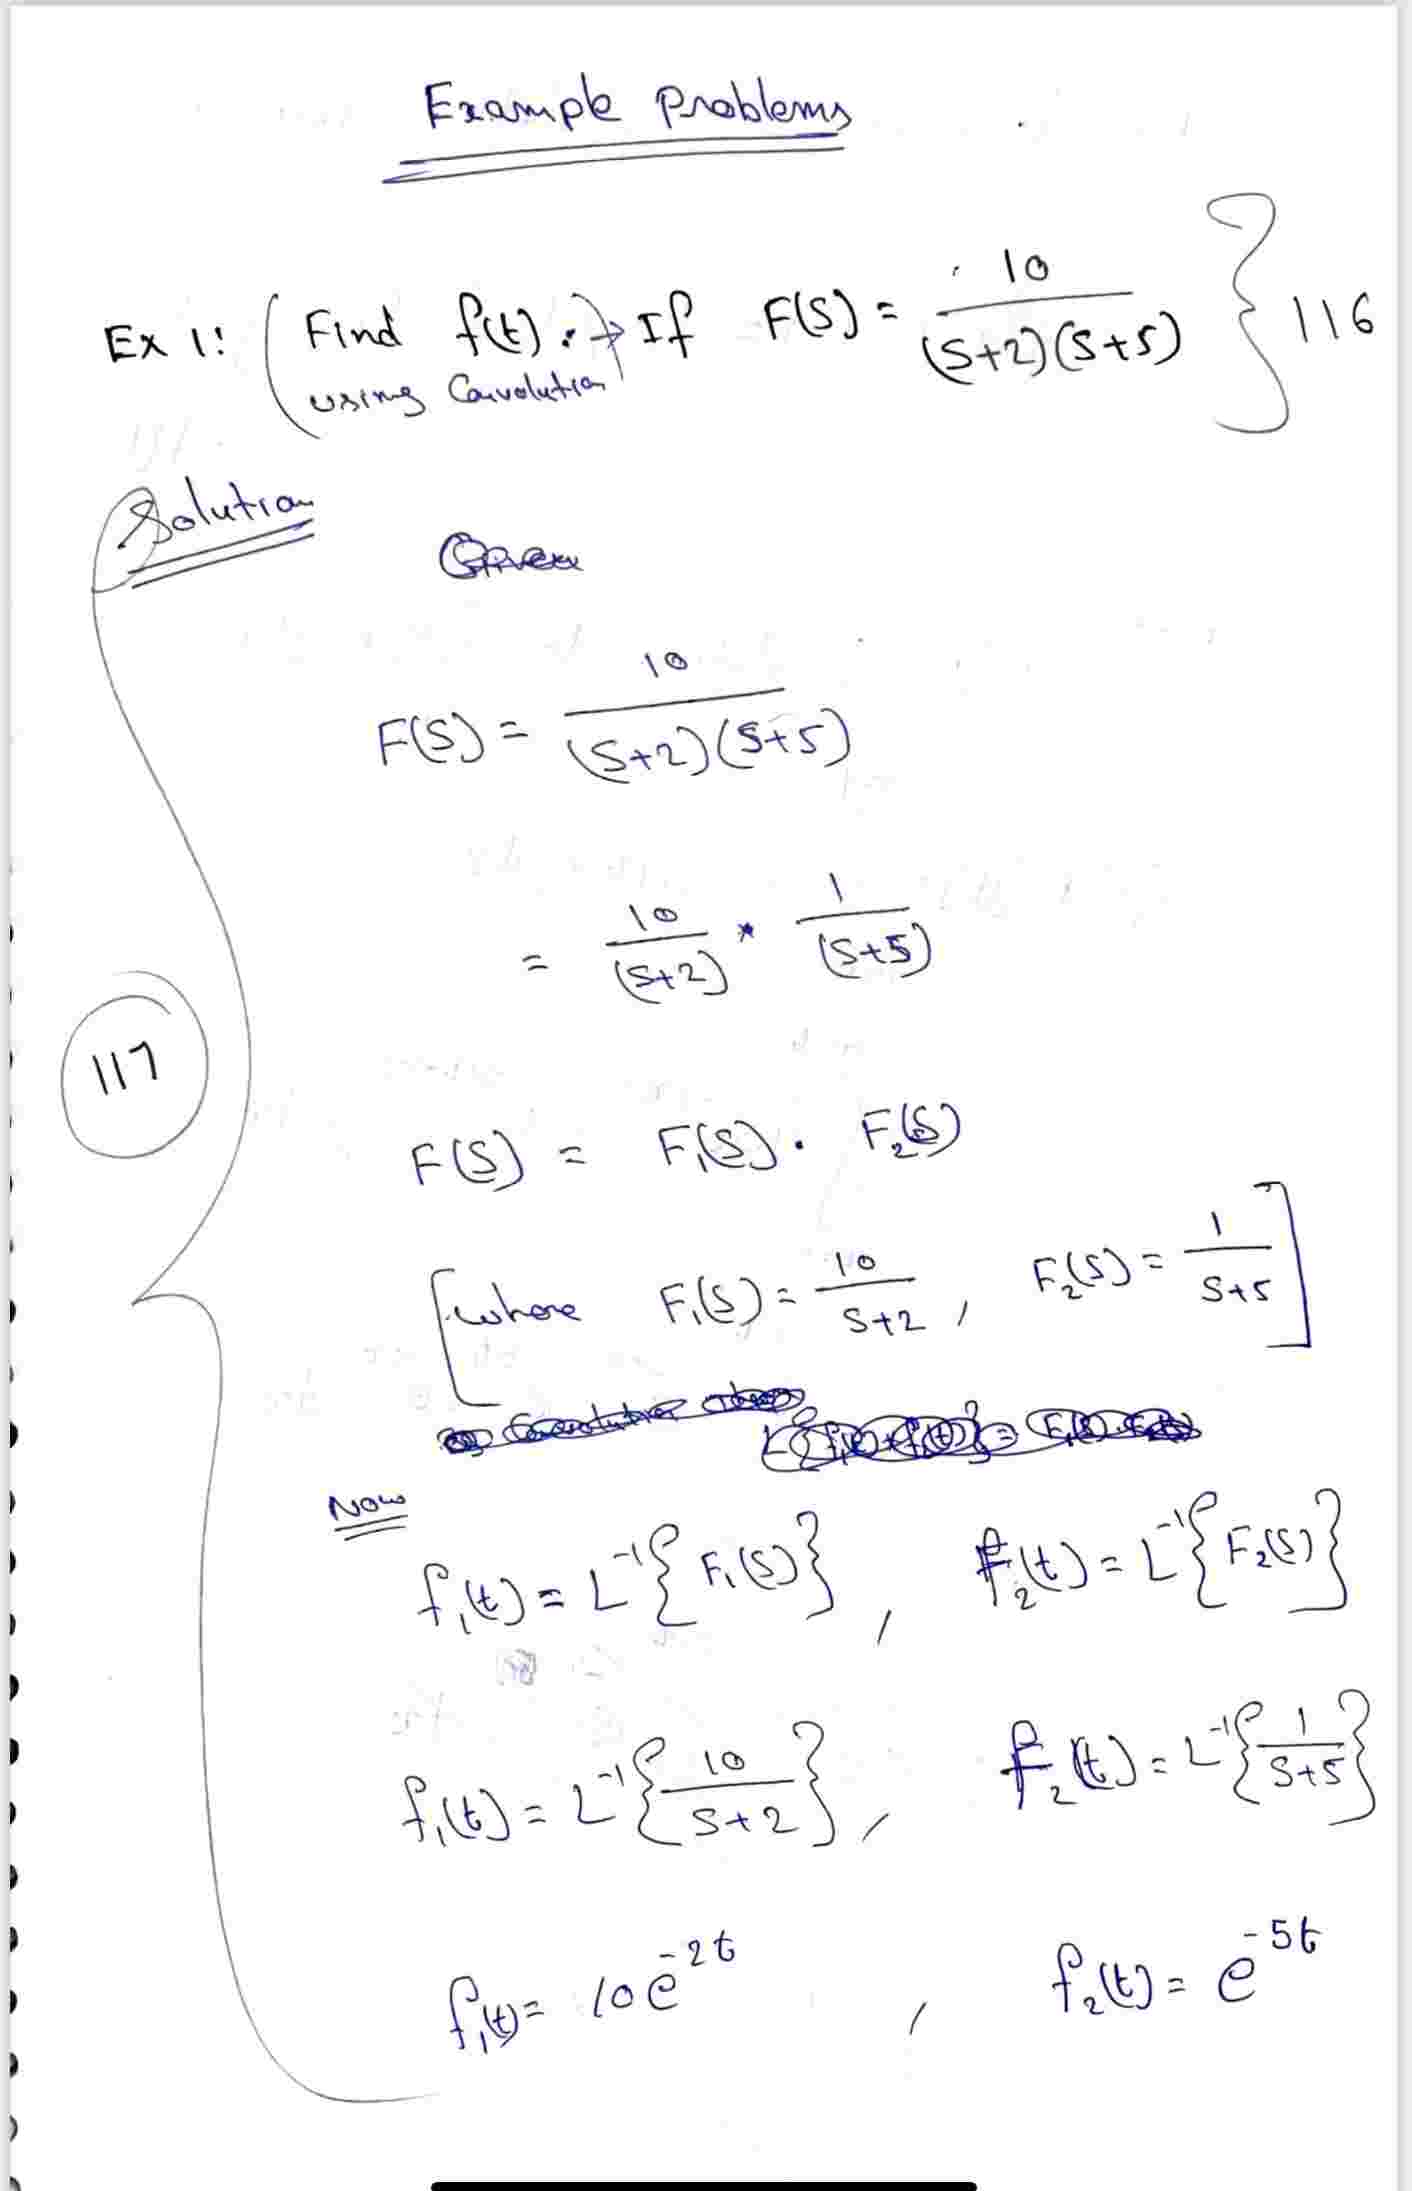 Example Problems
Ex 1: (Find f(t). If F(S) = 10/((S+2)(S+5)) } 116
using Convolution)
Solution
Given
F(S) = 10/((S+2)(S+5))
= 10/(S+2) * 1/(S+5)
117
F(S) = F₁(S) . F₂(S)
[where F₁(S) = 10/(S+2) , F₂(S) = 1/(S+5)]
Now
f₁(t) = L⁻¹{F₁(S)} , f₂(t) = L⁻¹{F₂(S)}
f₁(t) = L⁻¹{10/(S+2)} , f₂(t) = L⁻¹{1/(S+5)}
f₁(t) = 10e^(-2t) , f₂(t) = e^(-5t)